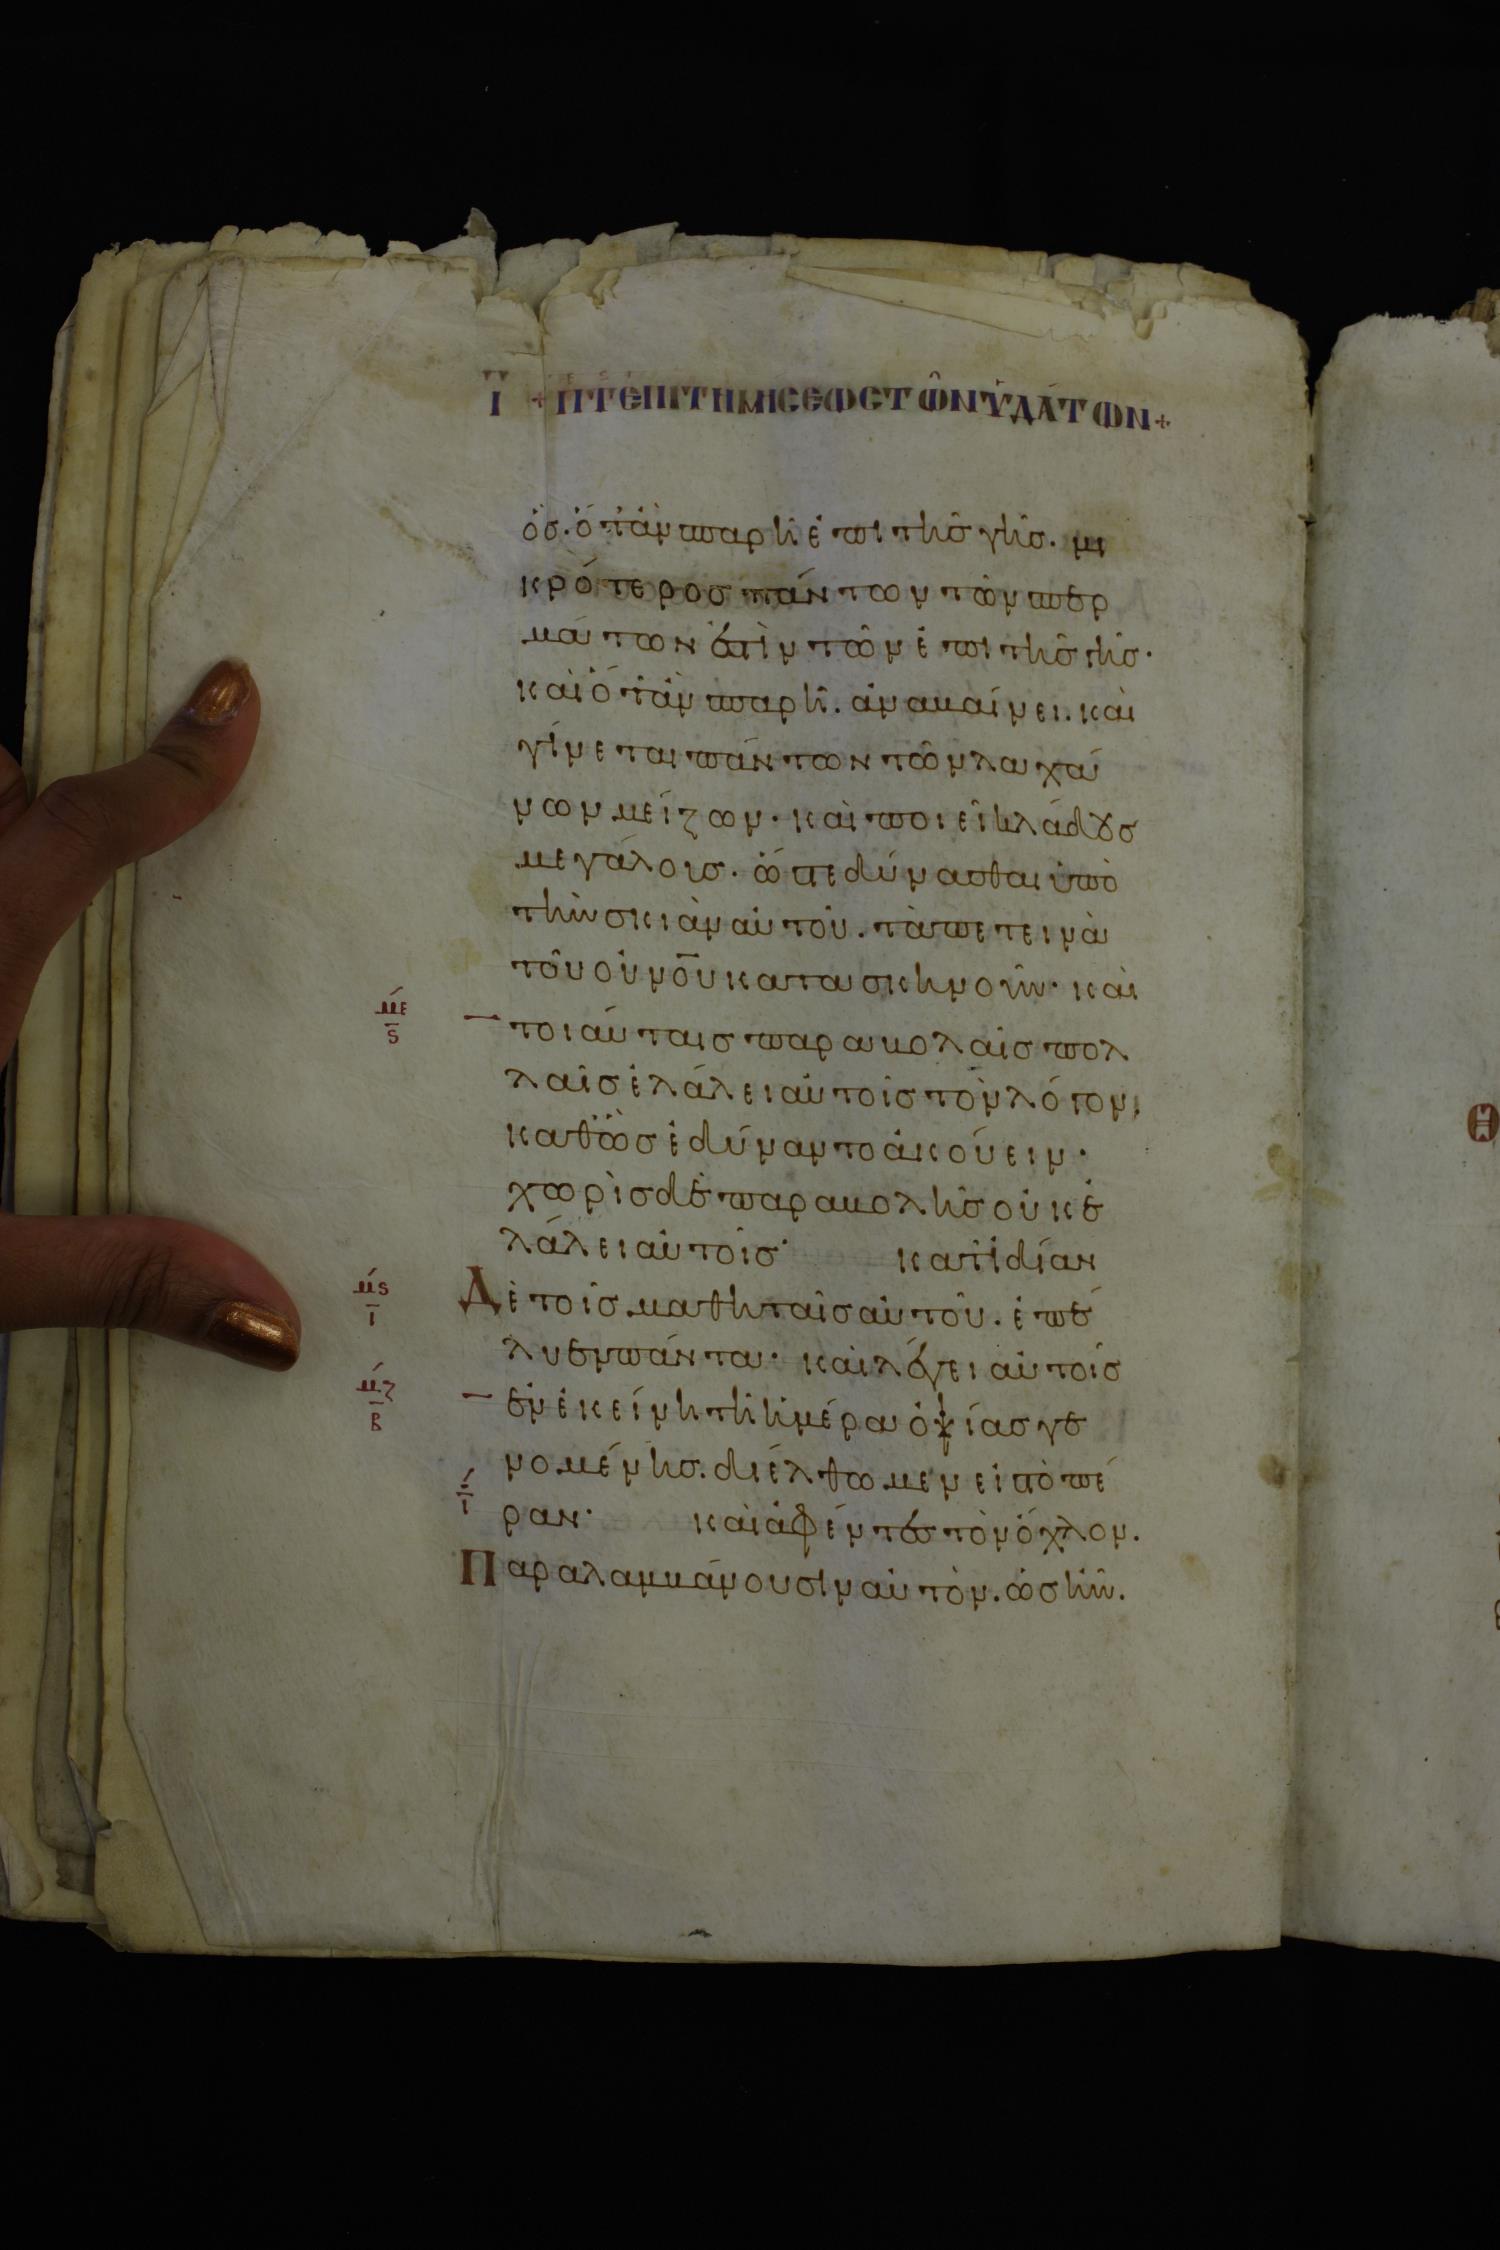 Ϊ + Π Τ ΕΠΙΤΗΜΙCΕΩC ΤΩ͂Ν Ὑ̓ΔΆΤΩΝ +
ὃσ. ὅτἂν σπαρῆ ἐπι τῆσ γῆσ. μι
κρότεροσ πάντων τῶν σπερ
μάτων ἐστὶν τῶν ἐπι τῆσ γῆσ·
καὶ ὅτἂν σπαρῆ. ἀναβαίνει. καὶ
γίνεται πάντων τῶν λαχά
νων μείζων· καὶ ποιεῖ κλάδουσ
μεγάλουσ. ὥστε δύνασθαι ὑπὸ
τὴν σκιὰν αὐτοῦ. τὰ πετεινὰ
τοῦ οὐνοῦ κατασκηνοῦν· καὶ
με
ς
τοιαύταισ παραβολαῖσ πολ
λαῖσ ἐλάλει αὐτοῖσ τὸν λόγον,
καθὼσ ἐδύναντο ἀκούειν·
χωρὶσ δὲ παραβολῆσ οὐκ ἐ
λάλει αὐτοῖσ· κατἰδίαν
μς
ι
Δὲ τοῖσ μαθηταῖσ αὐτοῦ. ἐπέ
λυεν πάντα· καὶ λέγει αὐτοῖσ
μζ
β
ἐν ἐκείνη τῆ ἡμέρα ὀψίασ γε
νομένησ. διέλθωμεν εἰσ τὸ πέ
ι
ραν· καὶ ἀφέντεσ τὸν ὄχλον.
Παραλαμβάνουσιν αὐτὸν. ὡσ ἦν.